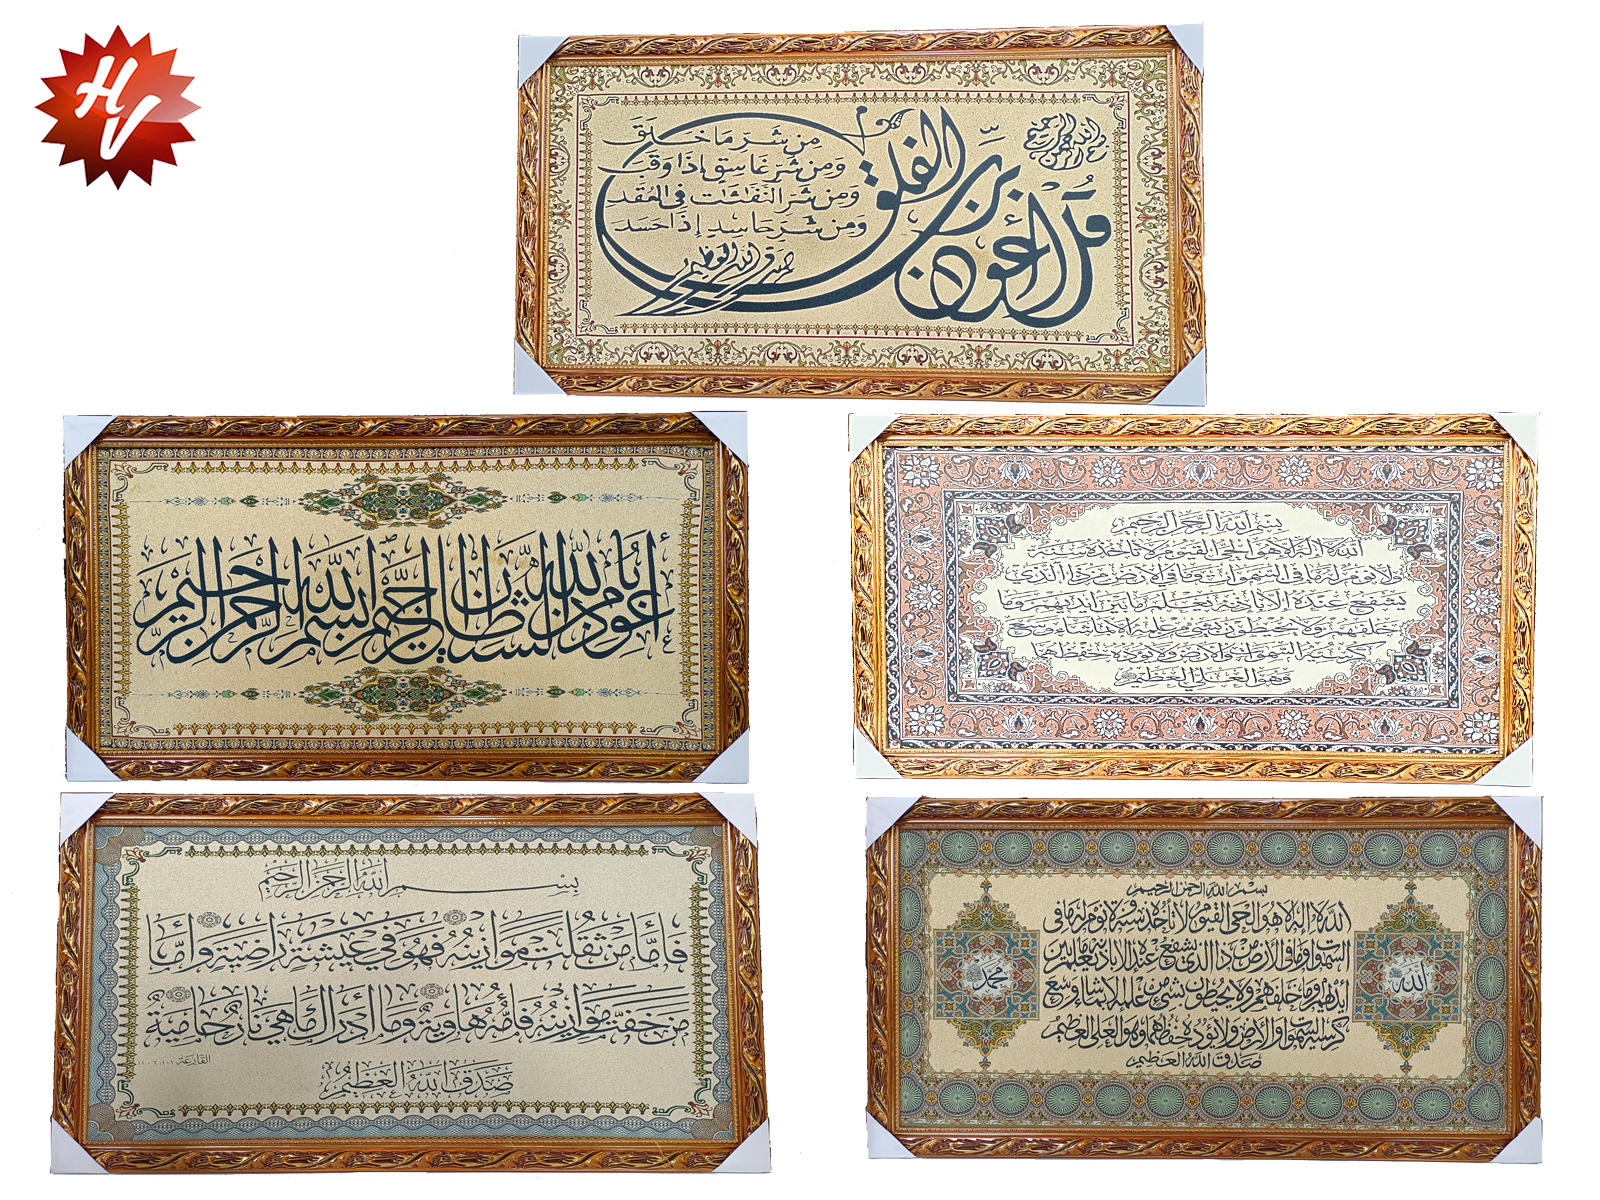 HV
بسم الله الرحمن الرحيم
قل أعوذ برب الفلق
مِن شَرِّ مَا خَلَقَ
وَمِن شَرِّ غَاسِقٍ إِذَا وَقَبَ
وَمِن شَرِّ النَّفَّثَٰتِ فِي العُقَدِ
وَمِن شَرِّ حَاسِدٍ إِذَا حَسَدَ
صدق الله العظيم
أعوذ بالله من الشيطان الرجيم بسم الله الرحمن الرحيم
بسم الله الرحمن الرحيم
الله لا إله إلا هو الحي القيوم لا تأخذه سنة
ولا نوم له ما في السموات وما في الأرض من ذا الذي
يشفع عنده إلا بإذنه يعلم ما بين أيديهم وما
خلفهم ولا يحيطون بشيء من علمه إلا بما شاء وسع
كرسيه السموات والأرض ولا يؤده حفظهما
وهو العلي العظيم
بسم الله الرحمن الرحيم
فَأَمَّا مَن ثَقُلَتْ مَوَازِينُهُ فَهُوَ فِي عِيشَةٍ رَاضِيَةٍ وَأَمَّا
مَنْ خَفَّتْ مَوَازِينُهُ فَأُمُّهُ هَاوِيَةٌ وَمَا أَدْرَاكَ مَا هِيَ نَارٌ حَامِيَةٌ
القارعة
صَدَقَ اللهُ العَظِيمُ
بسم الله الرحمن الرحيم
الله لا إله إلا هو الحي القيوم لا تأخذه سنة ولا نوم له ما في
السموات وما في الأرض من ذا الذي يشفع عنده إلا بإذنه يعلم ما بين
أيديهم وما خلفهم ولا يحيطون بشيء من علمه إلا بما شاء وسع
كرسيه السموات والأرض ولا يؤده حفظهما وهو العلي العظيم
صدق الله العظيم
الله
محمد